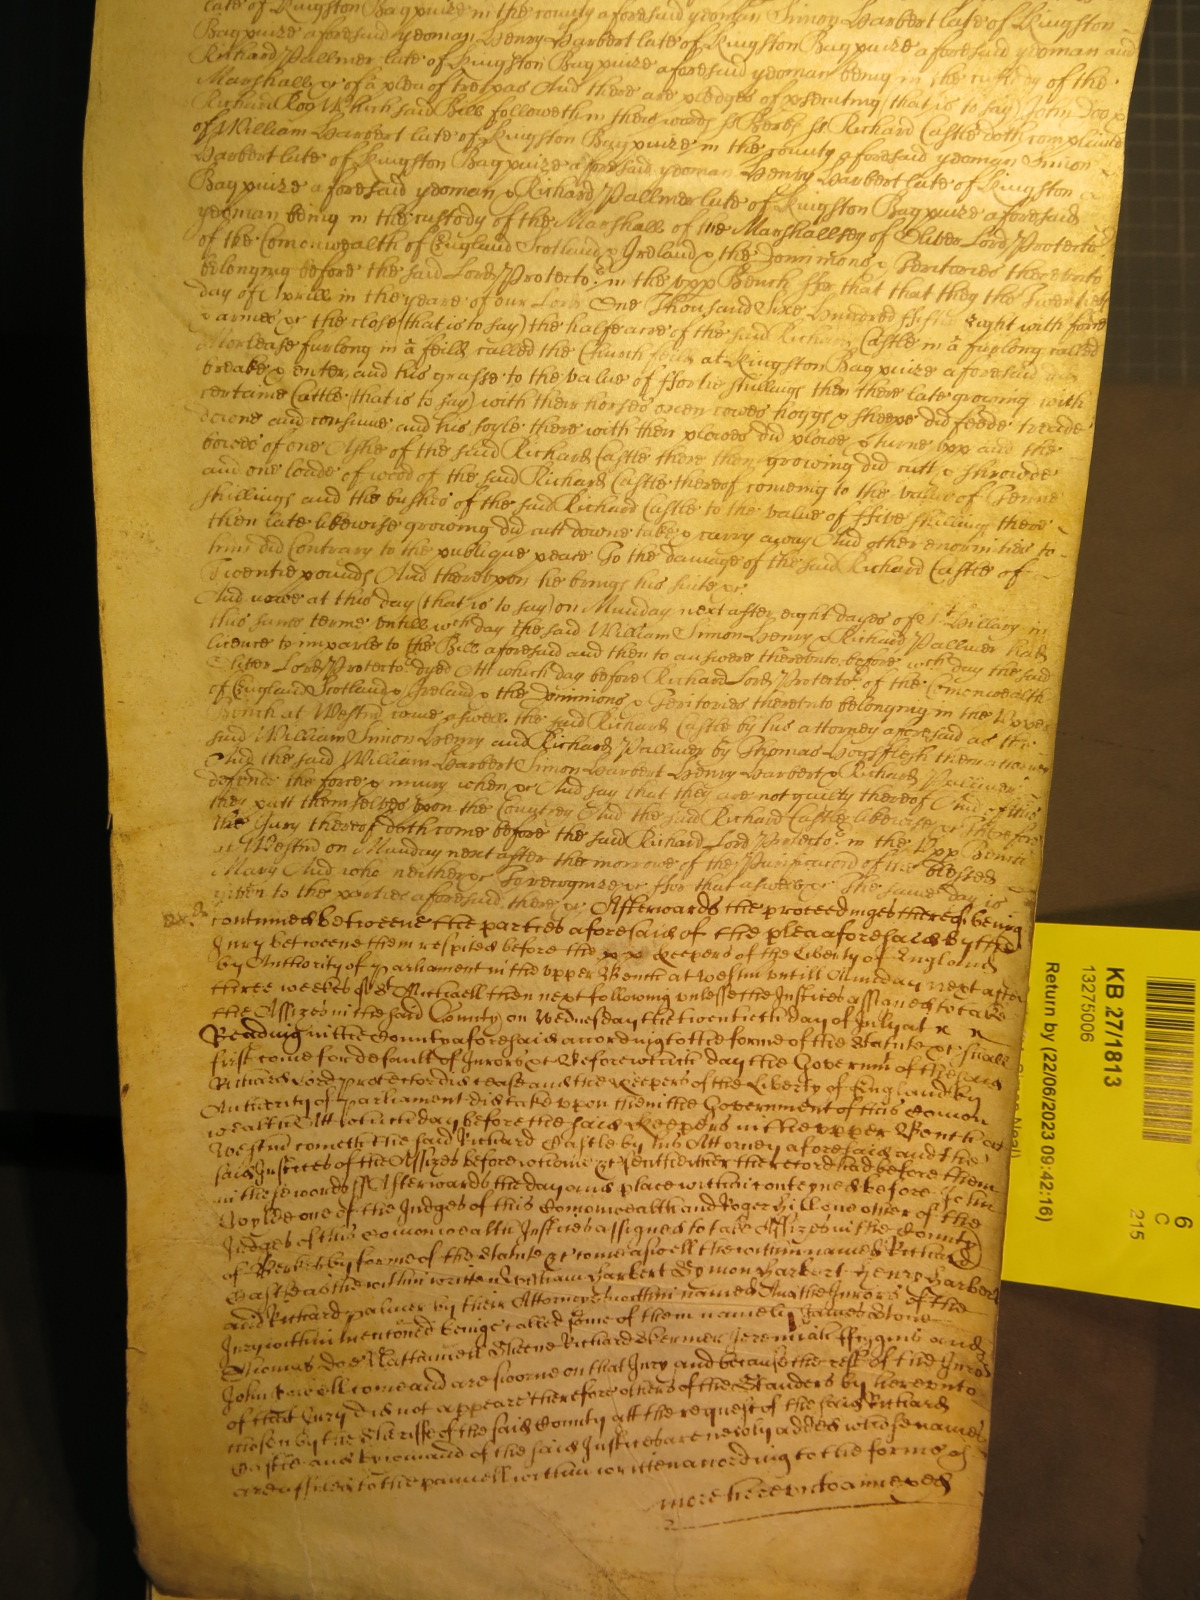 late of Kingston Bagpuize in the county aforesaid yeoman Simon Harbert late of Kingston
Bagpuize aforesaid yeoman Henry Harbert late of Kingston Bagpuize aforesaid yeoman and
Richard Pallmer late of Kingston Bagpuize aforesaid yeoman being in the custody of the
Marshall &c of a plea of trespas And there are pledges of psecuting (that is to say) John Doo &
Richard Roo Which said Bill followeth in these words ss Berks ss Richard Castle doth complaine
of William Harbert late of Kingston Bagpuize in the county aforesaid yeoman Simon
Harbert late of Kingston Bagpuize afforesaid yeoman Henry Harbert late of Kingston
Bagpuize aforesaid yeoman & Richard Pallmer late of Kingston Bagpuize aforesaid
yeoman being in the custody of the Marshall of the Marshallsey of Oliver Lord Protector
of the Comonwealth of England Scotland & Ireland & the Dominions & Territories thereunto
belonging before the said Lord Protector in the upp Bench ffor that that they the Twentieth
day of Aprill in the yeare of our Lord One Thousand Sixe Hundred ffiftie Eight with force
& armes &c the close (that is to say) the halfe acre of the said Richard Castle in a furlong called
furlong in a feild called the Church feild at Kingston Bagpuize aforesaid did
breake & enter and his grasse to the value of ffortie shillings then there late growing with
certaine Cattle (that is to say) with their horses oxen cowes hoggs & sheepe did feede treade
downe and consume and his soyle there with their plowes did plowe & turne upp and the
bowes of one Ashe of the said Richard Castle there then growing did cutt & shrowde
and one loade of wood of the said Richard Castle thereof comeing to the value of Tenne
shillings and the bushes of the said Richard Castle to the value of ffive shillings there
then late likewise growing did cutt downe take & carry away And other enormities to
him did Contrary to the publique peace To the damage of the said Richard Castle of
Twentie pounds And thereupon he brings his suite &c
And nowe at this day (that is to say) on Munday next after eight dayes of St Hillary in
this same terme untill wch day the said William Simon Henry & Richard Pallmer had
licence to imparle to the Bill aforesaid and then to answere thereunto before wch day the said
Oliver Lord Protector dyed Att which day before Richard Lord Protector of the Comonwealth
of England Scotland & Ireland & the Dominions & Territories thereunto belonging in the Upper
Bench at Westm come aswell the said Richard Castle by his attorney aforesaid as the
said William Simon Henry and Richard Pallmer by Thomas Horsflesh their attorney
And the said William Harbert Simon Harbert Henry Harbert & Richard Pallmer
defend the force & iniury when &c And say that they are not guilty thereof And of this
they putt themselves upon the Countrey And the said Richard Castle likewise &c Therefore
the Jury thereof doth come before the said Richard Lord Protector in the Upp Bench
at Westm on Munday next after the morrowe of the Purificacon of the blessed
Mary And who neither &c To recognize &c ffor that aswell &c The same day is
given to the parties aforesaid there &c Afterwards the proceedinges thereof being
continued betweene the parties aforesaid of the plea aforesaid by the
Jury betweene them respited before the keepers of the Liberty of England
by Authority of Parliament in the upper Bench at Westm untill Munday next after
three weekes of St Michaell then next following unlesse the Justices assigned to take
the Assizes in the said County on Wednesday the twentieth day of July at
Reading in the County aforesaid according to the forme of the Statute &c shall
first come for default of Jurors &c Before which day the Governmt of the said
Richard Lord Protector did cease and the keepers of the Liberty of England by
Authority of Parliament did take upon them the Government of this Comon
wealth Att which day before the said keepers in the upper Bench at
Westm cometh the said Richard Castle by his Attorney aforesaid and the
said Justices of the Assizes before whome &c sent hether the record had before them
in these words ss Afterwards the day and place within conteyned before John
one of the Judges of this Comonwealth and Roger Hill one other of the
Judges of this Comonwealth Justices assigned to take Assizes in the County
of Berks by forme of the statute &c come aswell the within named Richard
Castle as the within written William Harbert Symon Harbert Henry Harbert
and Richard Palmer by their Attorneys within named And the Jurors of the
Jury within mentioned being called some of them namely James Stone
Thomas Doe Nathaniell Sheene Richard Skermer Jeremiah and
John come and are sworne on that Jury and because the rest of the Jurors
of that Jury did not appeare therefore others of the Standers by hereunto
chosen by the Sheriffe of the said County att the request of the said Richard
Castle and by comand of the said Justices are newly added whose names
are affiled to the pannell within written according to the forme of
more hereunto annexed
KB 27/1813
13275006
Return by (22/06/2023 09:42:16)
6
C
215